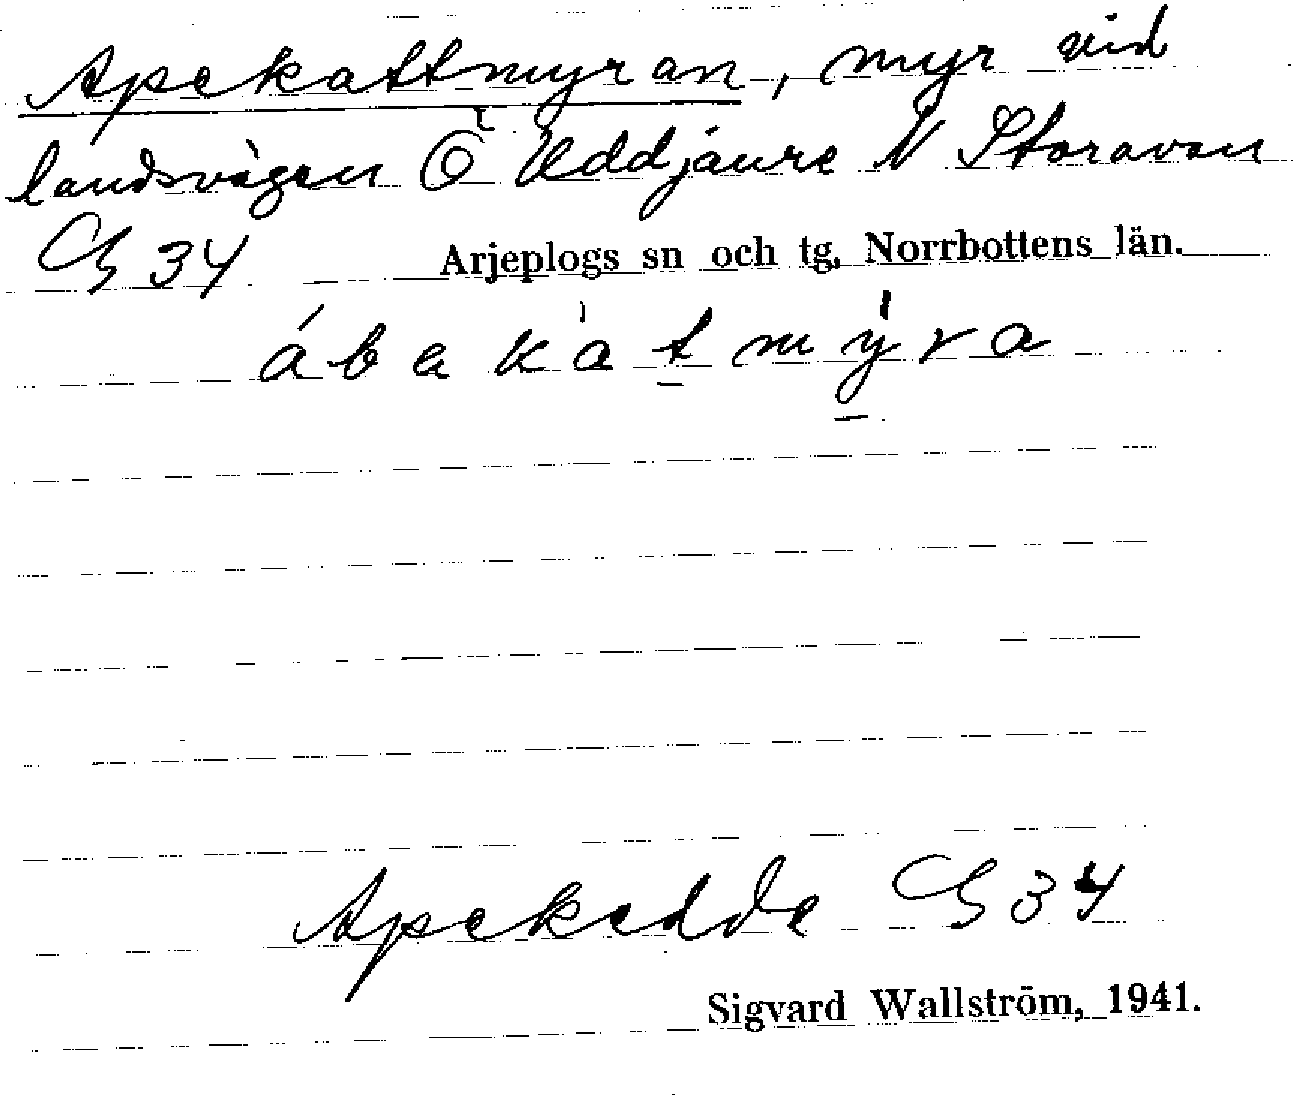 Apekattmyran, myr vid
landsvägen Ö Uddjaure N Storavan
G 34 Arjeplogs sn och tg, Norrbottens län.
ábekàtmýra
Apekedde G 34
Sigvard Wallström, 1941.